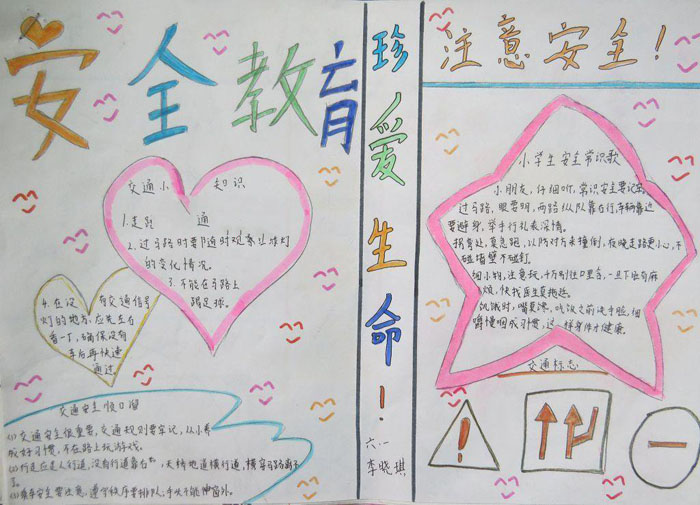 安全教育
交通小知识
1.走路 通
2.过马路时要随时观察红绿灯
的变化情况。
3.不能在马路上
踢足球。
4.在没有交通信号
灯的地方,应先左右
看一下,确保没有
车后再快速
通过。
交通安全顺口溜
(1)交通安全很重要,交通规则要牢记,从小养
成好习惯,不在路上玩游戏。
(2)行走应走人行道,没有行道靠右,天桥地道横行道,横穿马路离不
了。
(3)乘车安全要注意,遵守秩序要排队,手头不能伸窗外。
珍爱生命!
六.一
李晓琪
注意安全!
小学生安全常识歌
小朋友,仔细听,常识安全要记牢
过马路,眼要明,两路纵队靠右行,车辆靠近
要避身,举手行礼表深情。
拐弯处,莫急跑,以防对方来撞倒,夜晚走路更小心,不
碰墙壁不碰钉。
细小物,注意玩,千万别往口里含,一旦下咽有麻
烦,快找医生莫拖延。
饥饿时,嘴莫馋,吃饭之前洗手脸,细
嚼慢咽成习惯,这样身体才健康。
交通标志
!